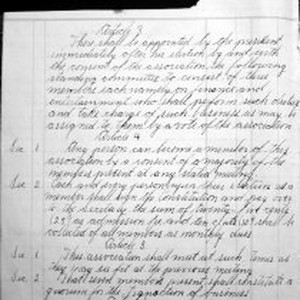 Article 3
There shall be appointed by the president
immediately after his election by and with
the consent of the association, the following
standing committee to consist of three
members each namely, on finance and
entertainment who shall preform such duties
and take charge of such business as may be
assigned to them by a vote of the association
Article 4
Sec 1 Any person can become a member of this
association by a consent of a majority of the
members present at any stated meeting.
Sec 2 Each and every person upon their election as a
member shall sign the Constitution and pay over
to the Secretary the sum of twenty-five cents
as admission fee and ten cents shall be
collected of all members as monthly dues
Article 5
Sec 1 This association shall meet at such times as
they may see fit at the previous meeting
Sec 2 members present, shall constitute a
quorum for the transaction of business